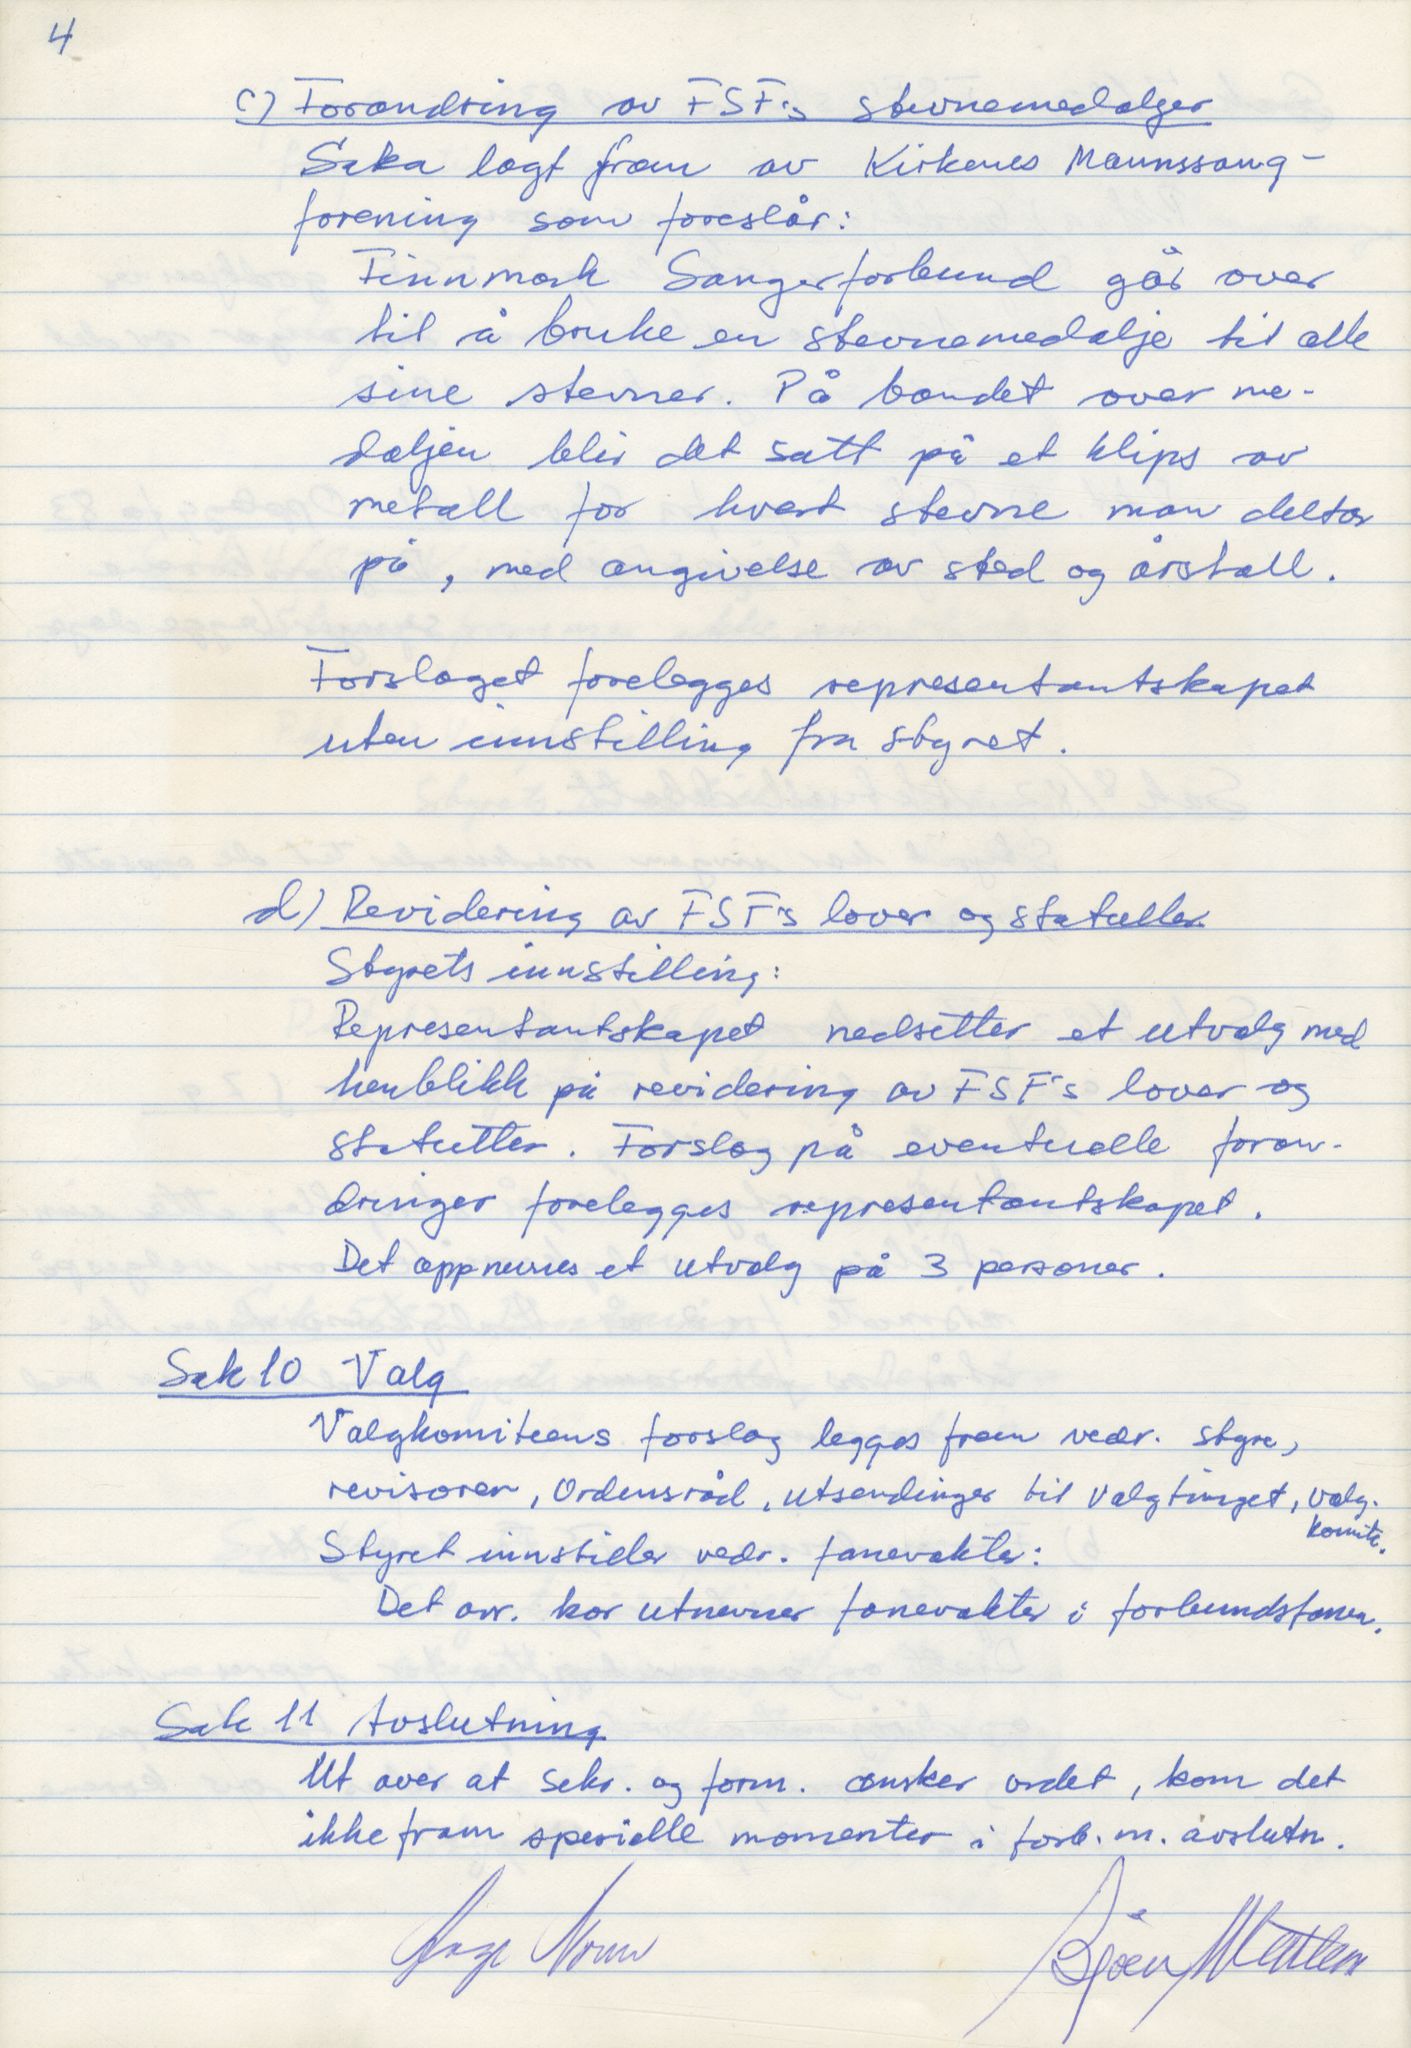 4
c) Forandring av FSF's stevnemedaljer
Saka lagt fram av Kirkenes Mannssang-
forening som foreslår:
Finnmark Sangerforbund går over
til å bruke en stevnemedalje til alle
sine stevner. På bandet over me-
daljen blir det satt på et klips av
metall for hvert stevne man deltar
på, med angivelse av sted og årstall.
Forslaget forelegges representantskapet
uten innstilling fra styret.
d) Revidering av FSF's lover og statutter
Styrets innstilling:
Representantskapet nedsetter et utvalg med
henblikk på revidering av FSF's lover og
statutter. Forslag på eventuelle foran-
dringer forelegges representantskapet.
Det oppnevnes et utvalg på 3 personer.
Sak 10 Valg
Valgkomiteens forslag legges fram vedr. styre,
revisorer, Ordensråd, utsendinger til Valgtinget, valg-
komite.
Styret innstiller vedr. fanevakter:
Det arr. kor utnevner fanevakter i forbundsfanen.
Sak 11 Avslutning
Ut over at sekr. og form. ønsker ordet, kom det
ikke fram spesielle momenter i forb. m. avslutn.
Bjørn